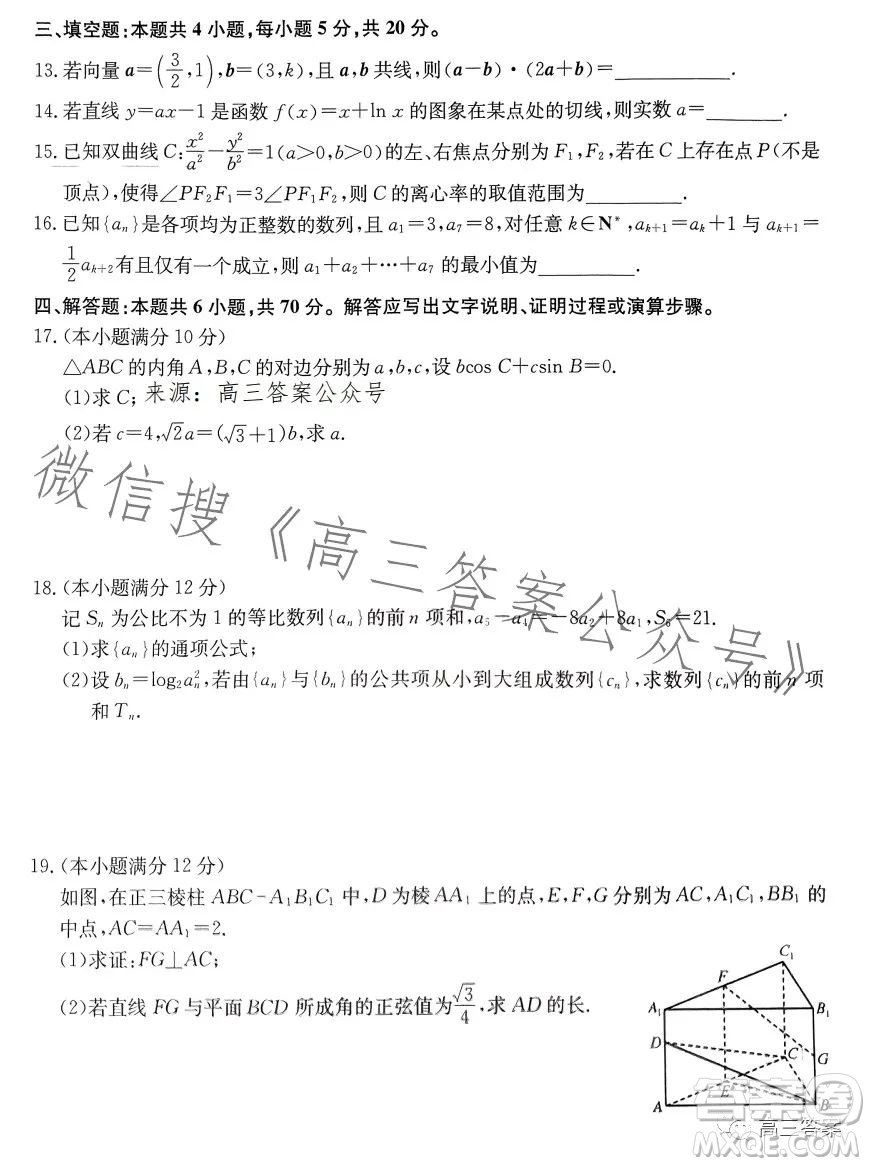 三、填空题:本题共 4 小题,每小题 5 分,共 20 分。
13.若向量 a=(3/2,1),b=(3,k),且 a,b 共线,则(a-b)·(2a+b)=________.
14.若直线 y=ax-1 是函数 f(x)=x+ln x 的图象在某点处的切线,则实数 a=________.
15.已知双曲线 C:x²/a²-y²/b²=1(a>0,b>0)的左、右焦点分别为 F₁,F₂,若在 C 上存在点 P(不是
顶点),使得∠PF₂F₁=3∠PF₁F₂,则 C 的离心率的取值范围为________.
16.已知{aₙ}是各项均为正整数的数列,且 a₁=3,a₇=8,对任意 k∈N*,aₖ₊₁=aₖ+1 与 aₖ₊₁=
1/2 aₖ₊₂有且仅有一个成立,则 a₁+a₂+…+a₇ 的最小值为________.
四、解答题:本题共 6 小题,共 70 分。解答应写出文字说明、证明过程或演算步骤。
17.(本小题满分 10 分)
△ABC 的内角 A,B,C 的对边分别为 a,b,c,设 bcos C+csin B=0.
(1)求 C; 来源:高三答案公众号
(2)若 c=4,√2a=(√3+1)b,求 a.
微信搜《高三答案公众号》
18.(本小题满分 12 分)
记 Sₙ 为公比不为 1 的等比数列{aₙ}的前 n 项和,a₅-a₄=-8a₂+8a₁,S₆=21.
(1)求{aₙ}的通项公式;
(2)设 bₙ=log₂aₙ²,若由{aₙ}与{bₙ}的公共项从小到大组成数列{cₙ},求数列{cₙ}的前 n 项
和 Tₙ.
19.(本小题满分 12 分)
如图,在正三棱柱 ABC-A₁B₁C₁ 中,D 为棱 AA₁ 上的点,E,F,G 分别为 AC,A₁C₁,BB₁ 的
中点,AC=AA₁=2.
(1)求证:FG⊥AC;
(2)若直线 FG 与平面 BCD 所成角的正弦值为√3/4,求 AD 的长.
C₁
F
A₁
B₁
D
C
G
E
A
B
答案圈
高三答案
MXQE.COM